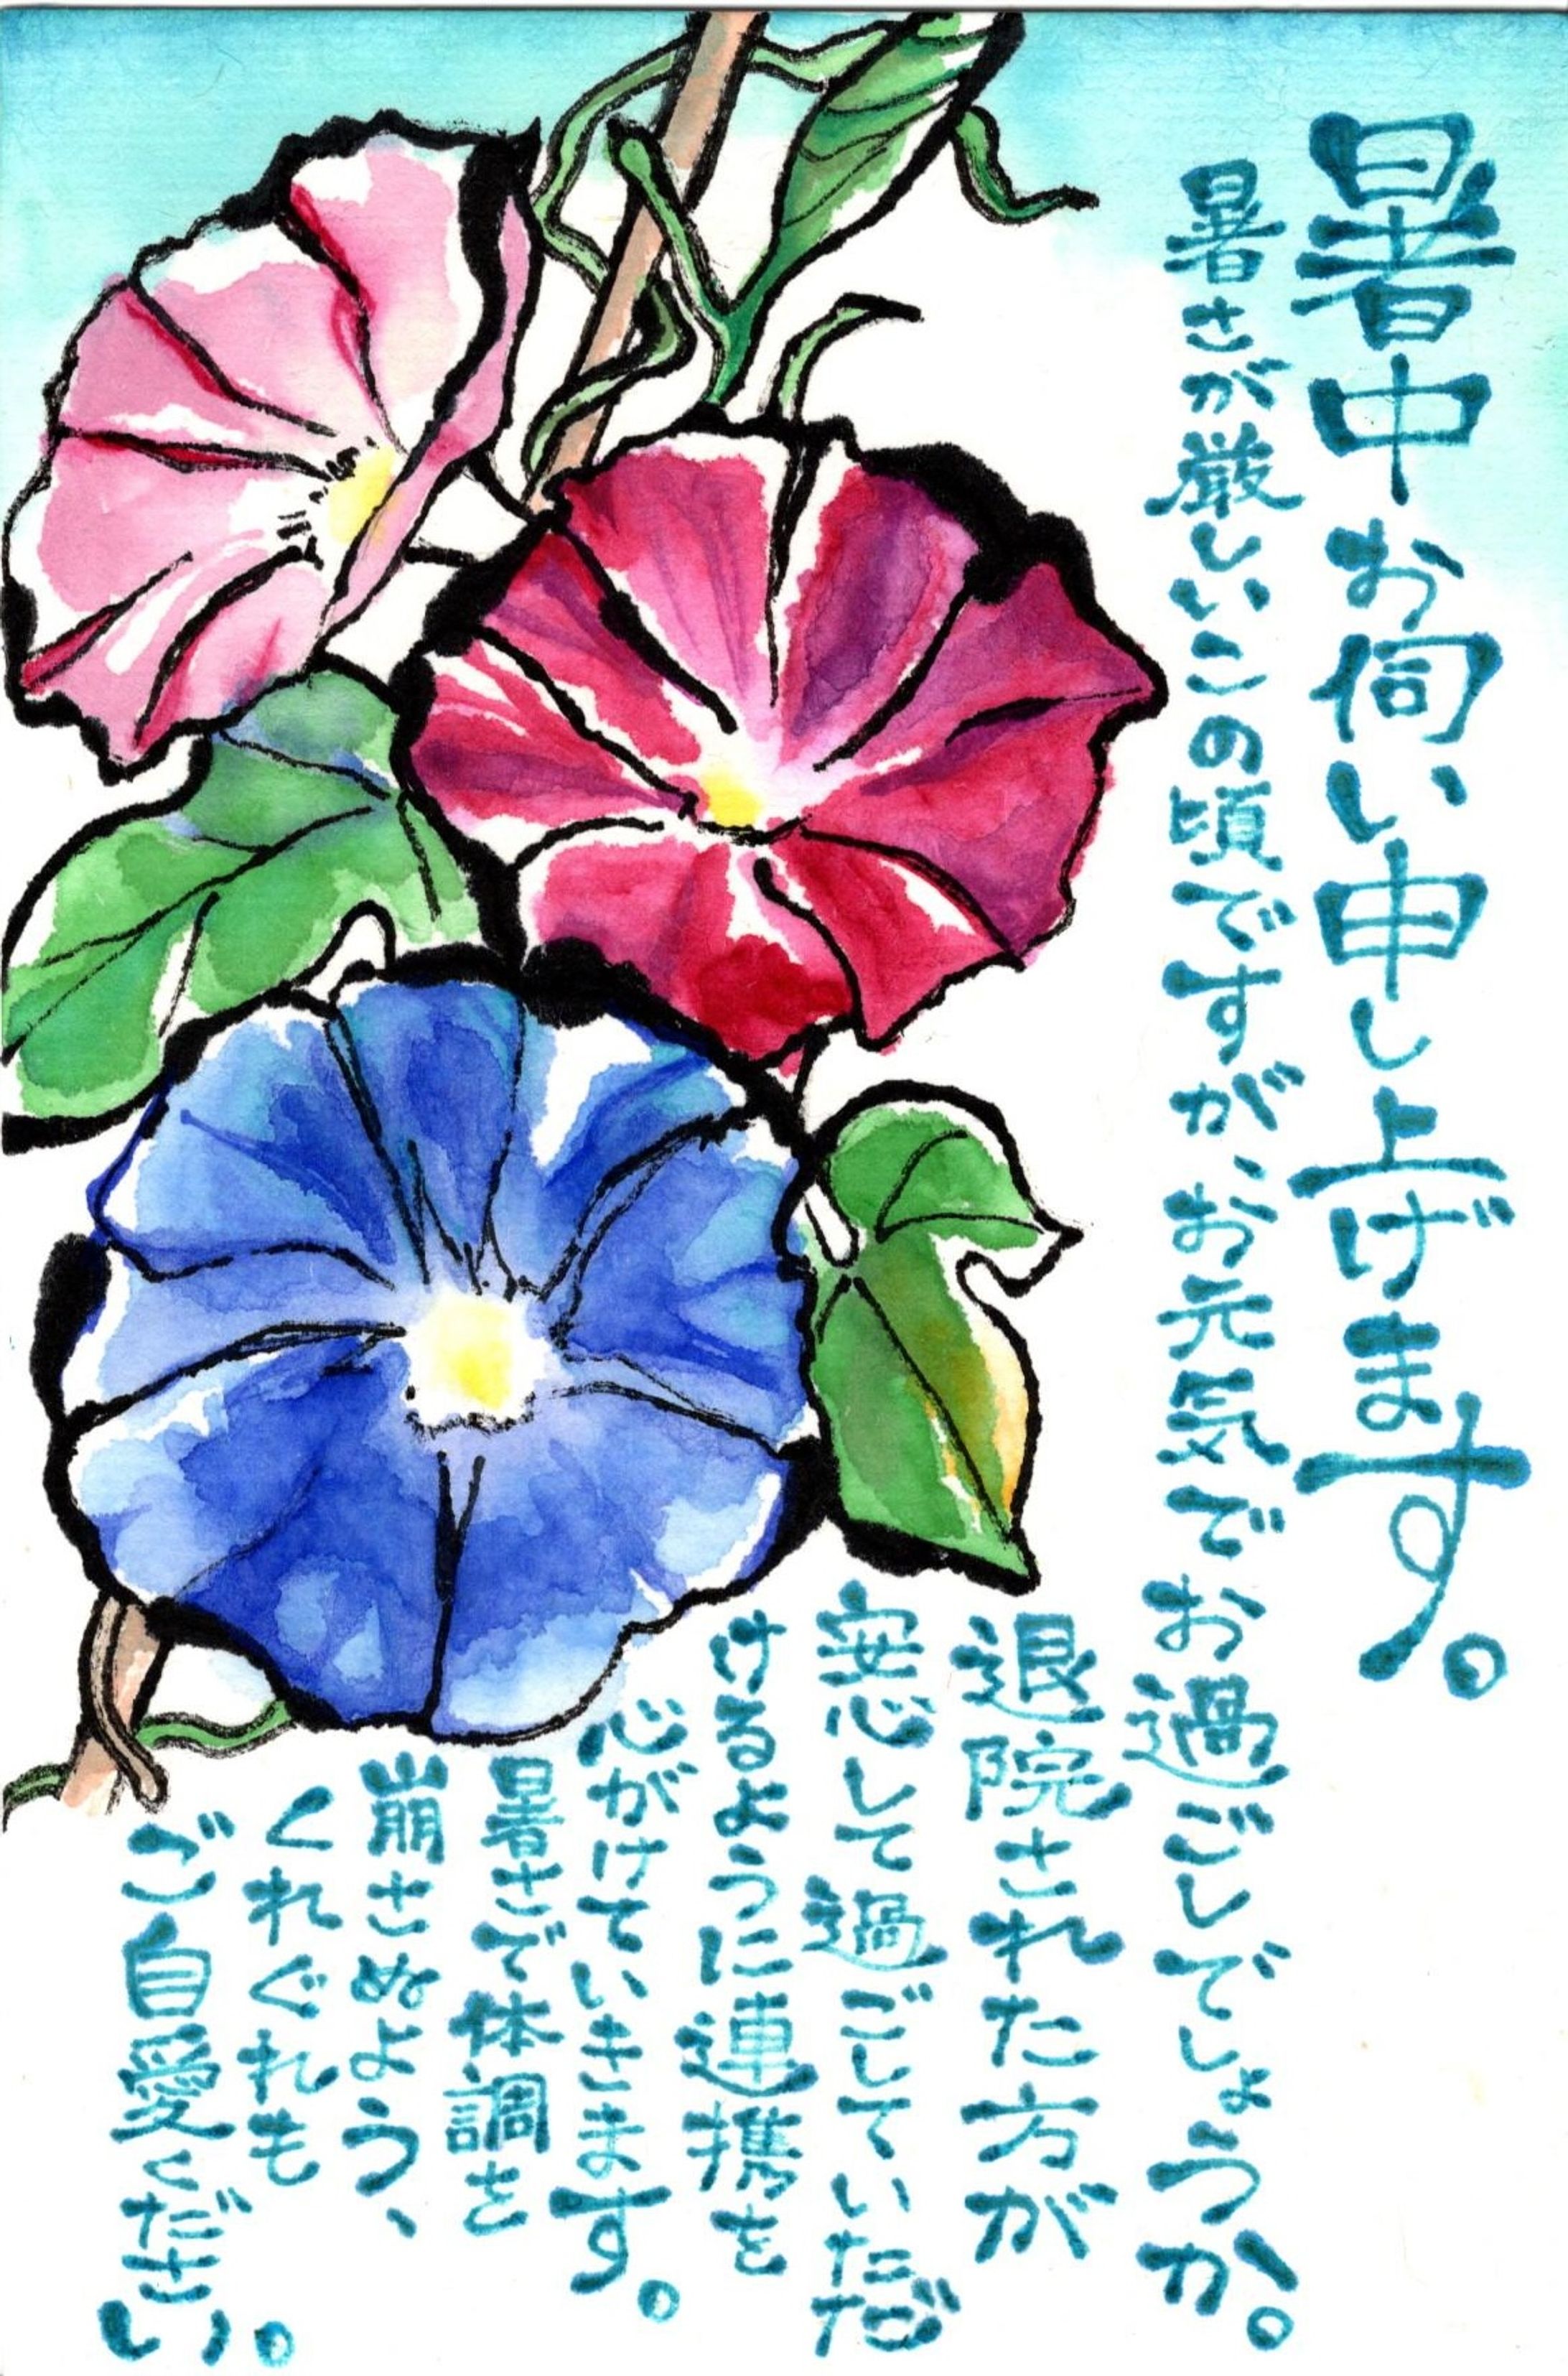 暑中お伺い申し上げます。
暑さが厳しいこの頃ですが、お元気でお過ごしでしょうか。
退院された方が
安心して過ごしていただ
けるように連携を
心がけていきます。
暑さで体調を
崩さぬよう、
くれぐれも
ご自愛ください。